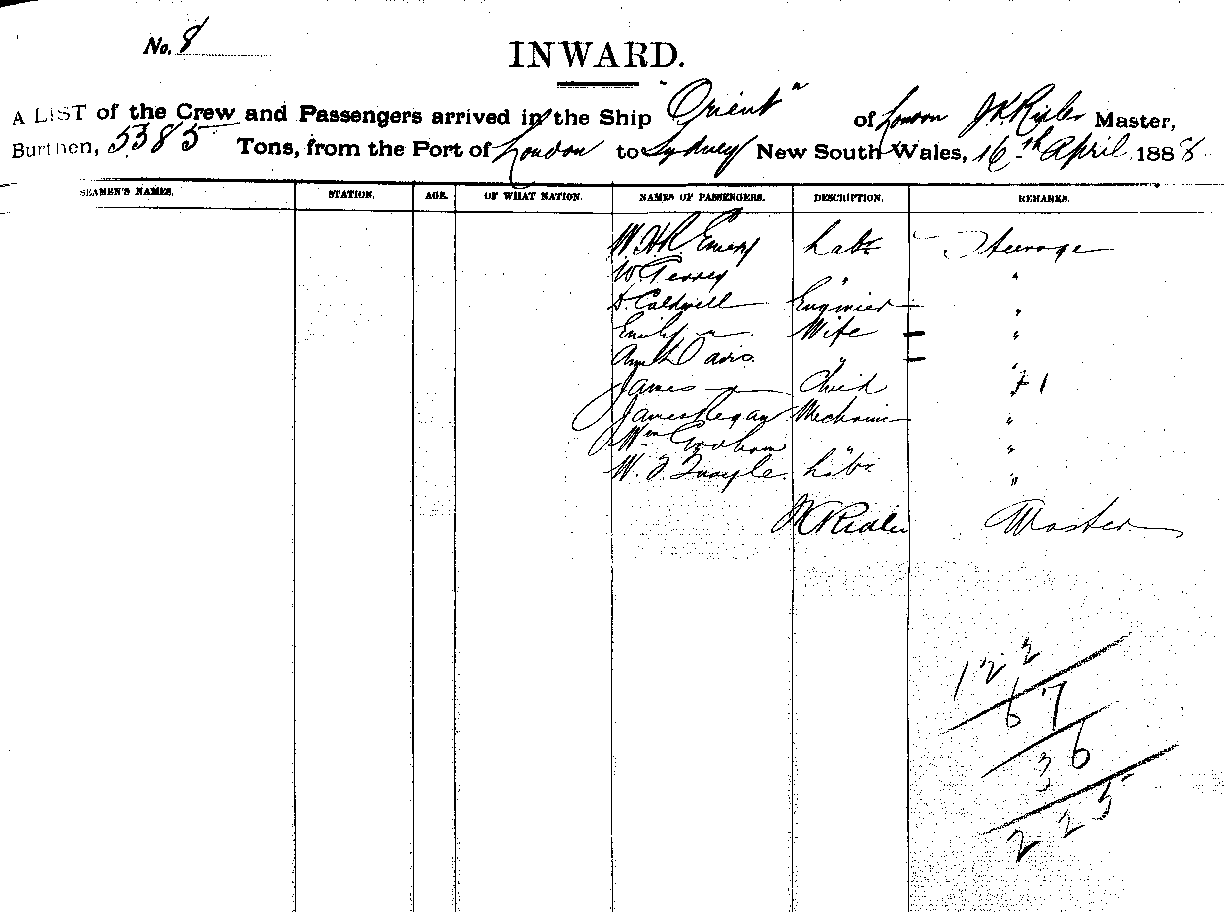 No. 8
INWARD.
A LIST of the Crew and Passengers arrived in the Ship "Orient" of London Master,
Burthen, 5385 Tons, from the Port of London to Sydney New South Wales, 16th April 1888
SEAMEN'S NAMES. STATION. AGE. OF WHAT NATION. NAMES OF PASSENGERS. DESCRIPTION. REMARKS.
W. H R Emery Labr Steerage
W "  "
D. Caldwell Engineer "
Emily " Wife "
Davis " "
James " Child 1
James Regan Mechanic "
Wm Graham " "
W. Labr "
Master
122
67
36
225